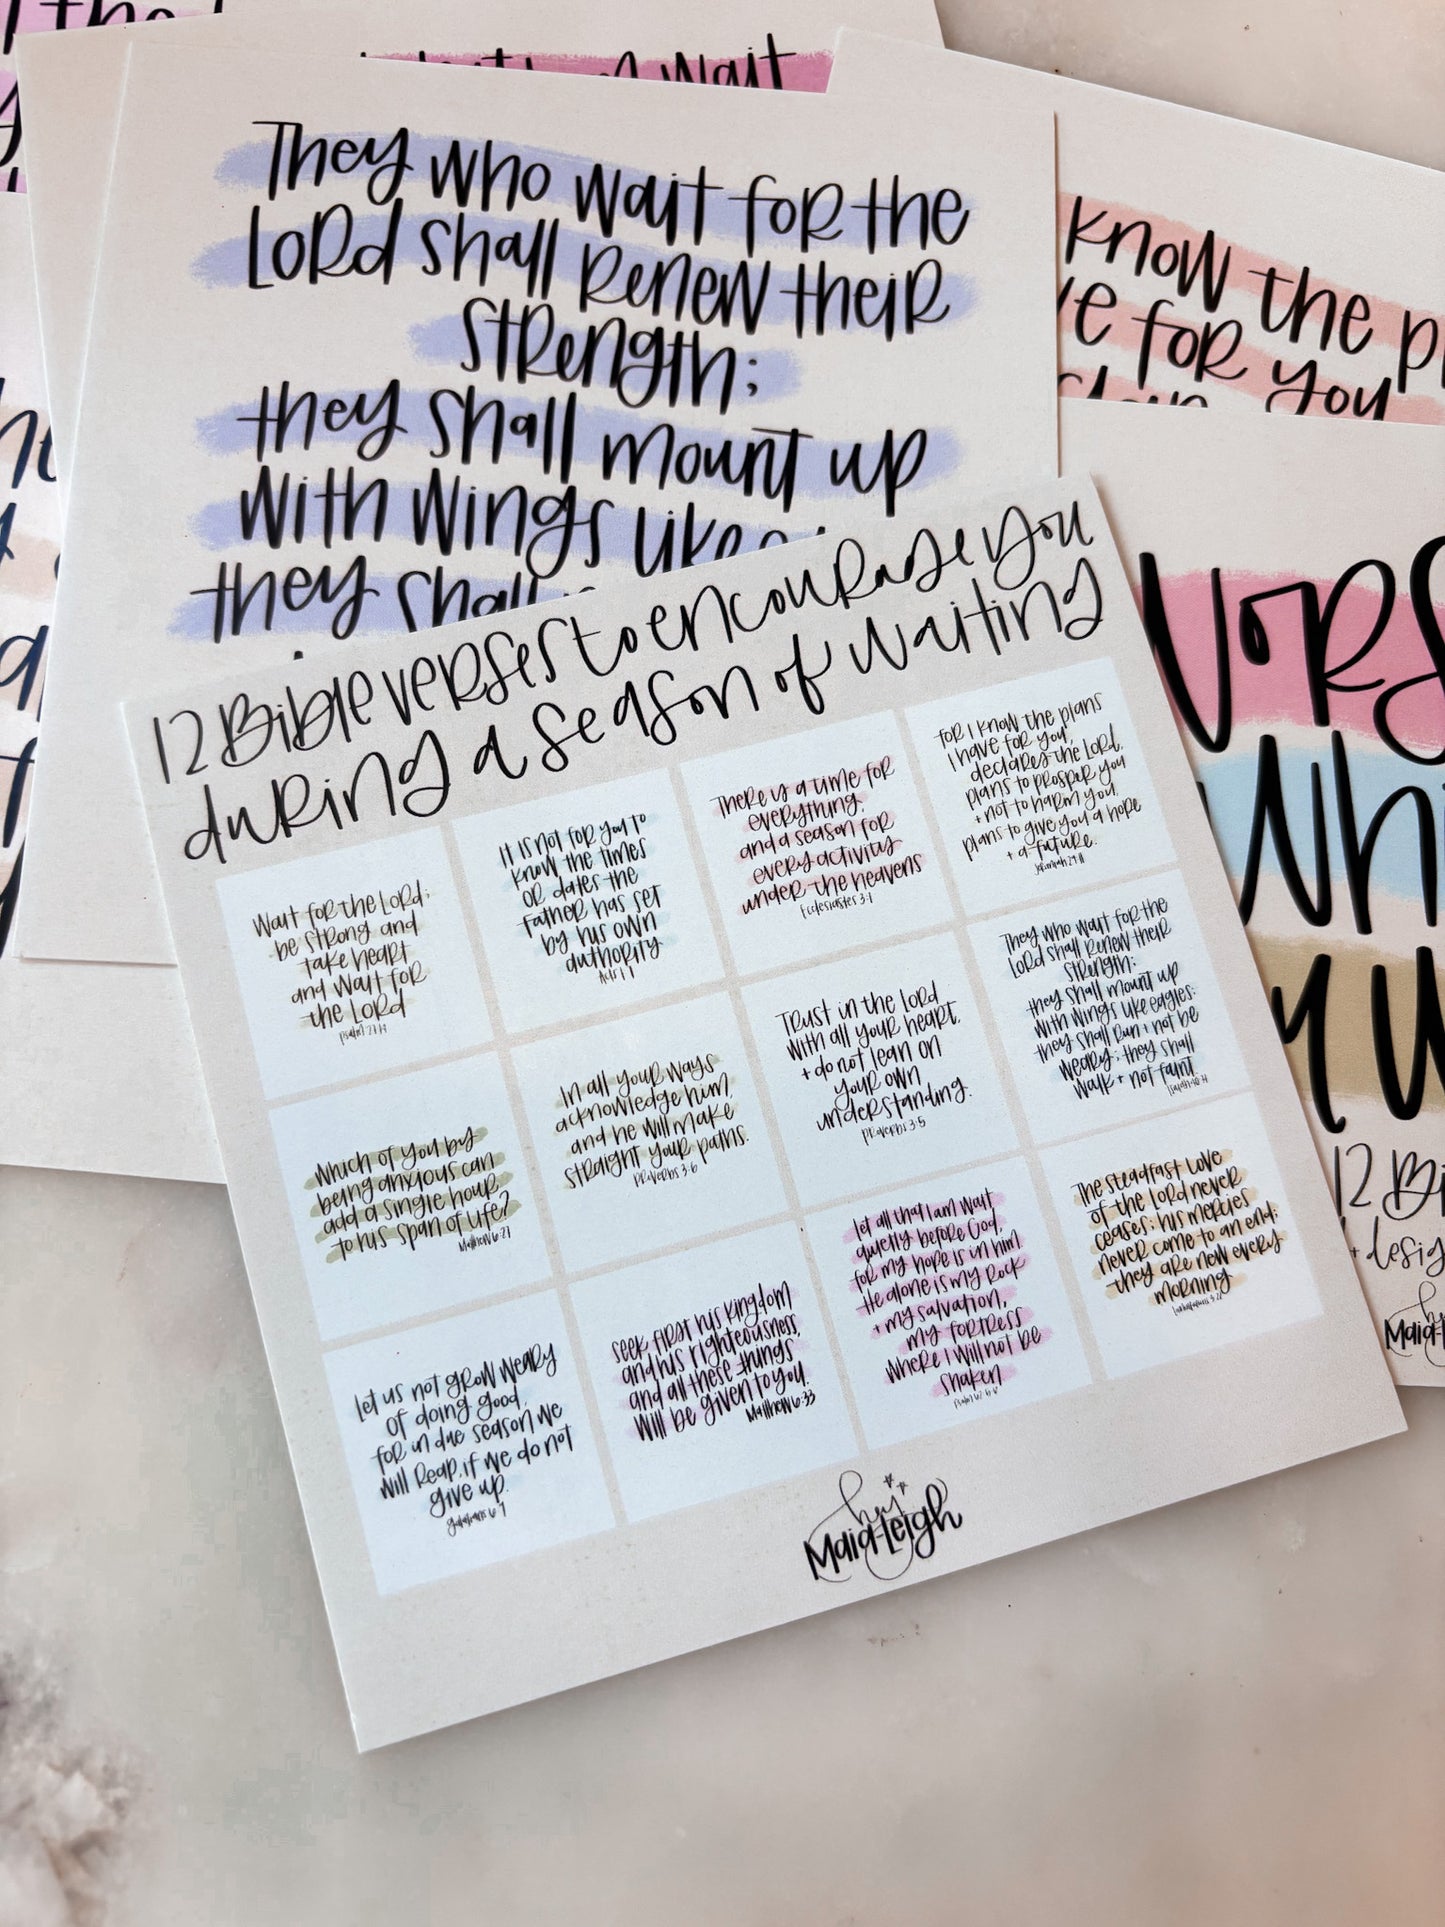 wait
They who wait for the
Lord shall renew their
strength;
they shall mount up
with wings like
they shall
know the
for you
12 Bible verses to encourage you
during a season of waiting
Wait for the Lord;
be strong and
take heart
and wait for
the Lord
It is not for you to
know the times
or dates the
Father has set
by his own
authority
There is a time for
everything,
and a season for
every activity
under the heavens
Ecclesiastes 3:1
for I know the plans
I have for you,
declares the Lord,
plans to prosper you
+ not to harm you,
plans to give you a hope
+ a future.
Jeremiah 29:11
Which of you by
being anxious can
add a single hour
to his span of life?
Matthew 6:27
In all your ways
acknowledge him,
and he will make
straight your paths.
Proverbs 3:6
Trust in the Lord
with all your heart,
+ do not lean on
your own
understanding.
Proverbs 3:5
They who wait for the
Lord shall renew their
strength;
they shall mount up
with wings like eagles;
they shall run + not be
weary; they shall
walk + not faint.
Let us not grow weary
of doing good,
for in due season we
will reap, if we do not
give up.
Seek first his kingdom
and his righteousness,
and all these things
will be given to you.
Matthew 6:33
let all that I am wait
quietly before God,
for my hope is in him.
He alone is my rock
+ my salvation,
my fortress
where I will not be
shaken
The steadfast love
of the Lord never
ceases; his mercies
never come to an end;
they are new every
morning
hey
Maia-Leigh
12 Bi